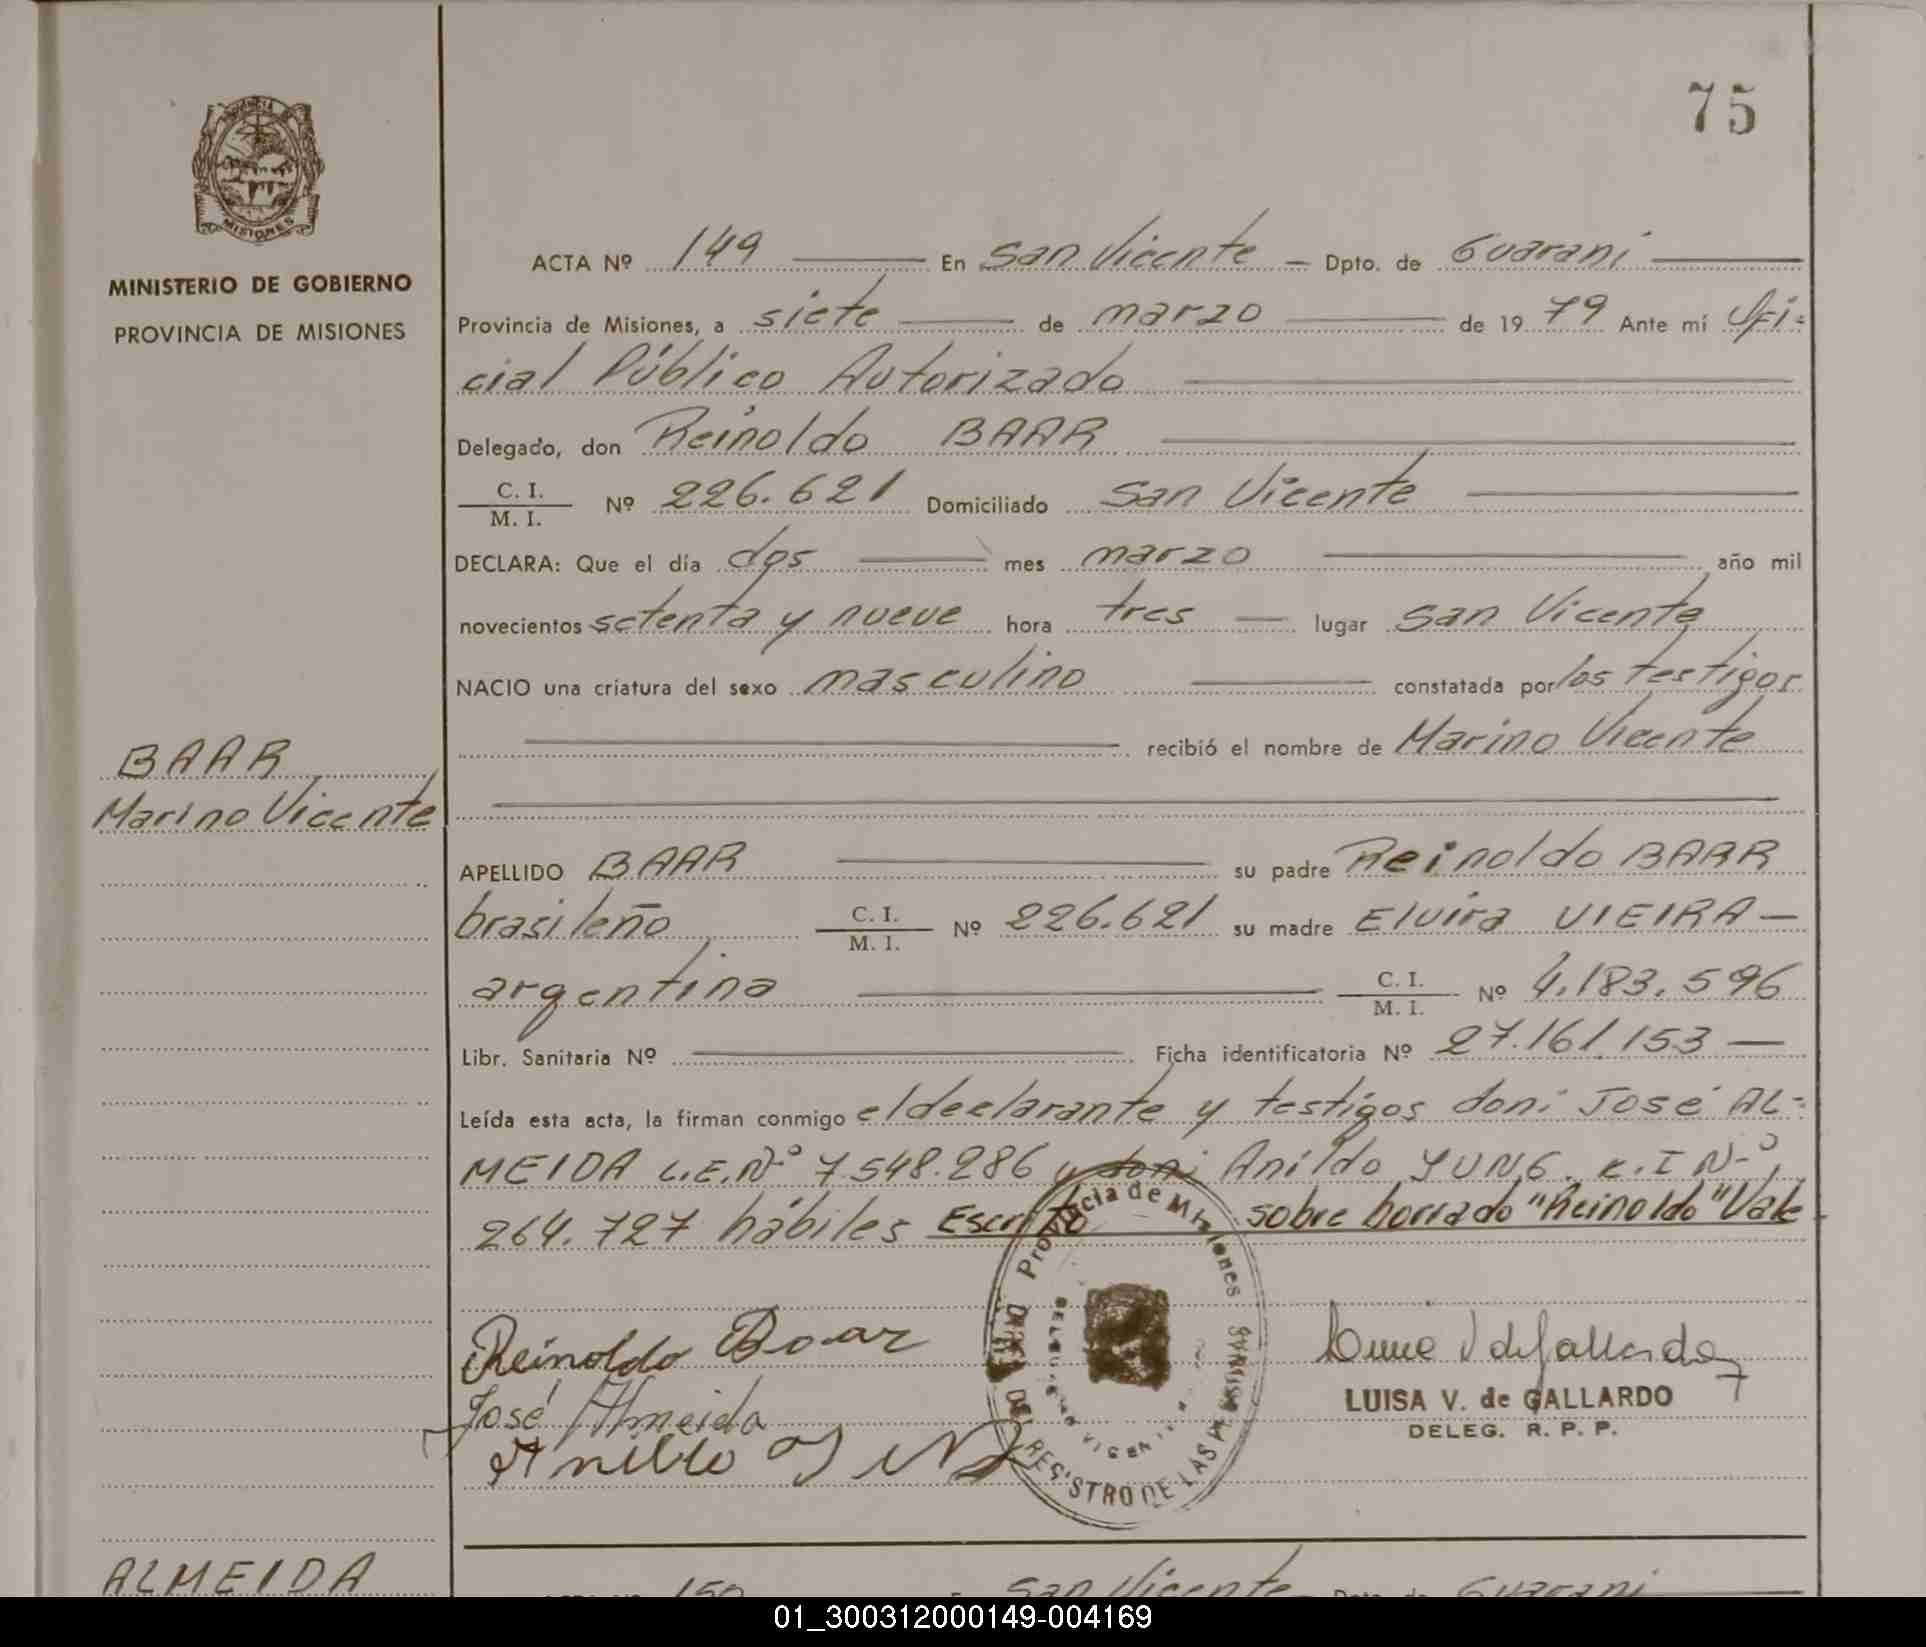 75
MINISTERIO DE GOBIERNO
PROVINCIA DE MISIONES
MISIONES
ACTA Nº 149 En San Vicente - Dpto. de Guarani
Provincia de Misiones, a siete de marzo de 1979 Ante mí Ofi-
cial Público Autorizado
Delegado, don Reinoldo BAAR
C. I.
M. I. Nº 226.621 Domiciliado San Vicente
DECLARA: Que el día dos mes marzo año mil
novecientos setenta y nueve hora tres lugar San Vicente
NACIO una criatura del sexo masculino constatada por los testigos
recibió el nombre de Marino Vicente
BAAR
Marino Vicente
APELLIDO BAAR su padre Reinoldo BAAR
brasileño C. I. M. I. Nº 226.621 su madre Elvira VIEIRA -
argentina C. I. M. I. Nº 4.183.596
Libr. Sanitaria Nº Ficha identificatoria Nº 27.161.153 -
Leída esta acta, la firman conmigo el declarante y testigos don: José AL-
MEIDA L.E.Nº 7.548.286 y don: Anildo YUNG. C.I Nº
264.727 hábiles Escrito sobre borrado "Reinoldo" Vale
Reinoldo Baar
José Almeida
Anildo
Provincia de Misiones
REGISTRO DE LAS PERSONAS
LUISA V. de GALLARDO
DELEG. R. P. P.
ALMEIDA
150 San Vicente - Dpto. de Guarani
01_300312000149-004169